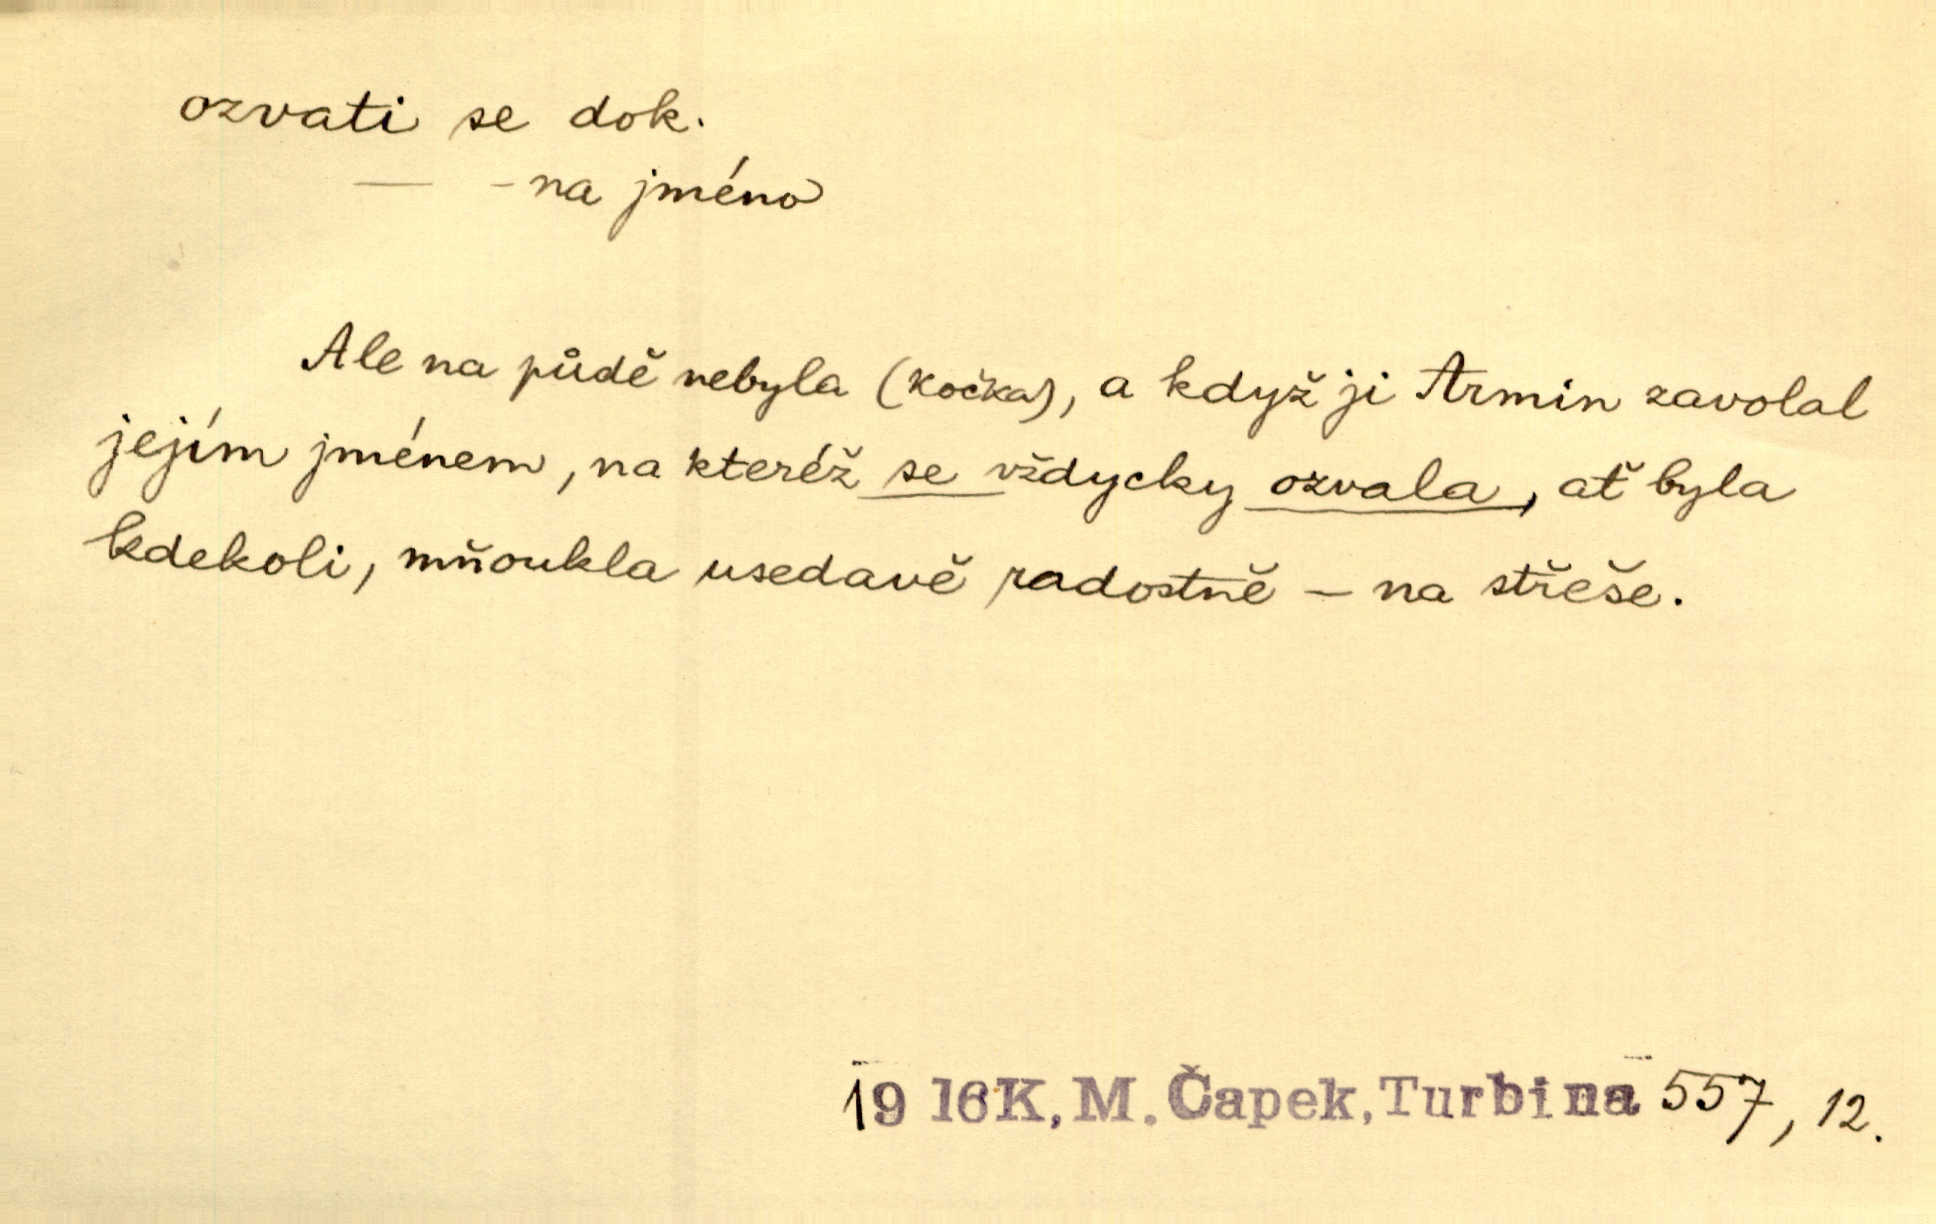 ozvati se dok.
— - na jméno
Ale na půdě nebyla (kočka), a když ji Armin zavolal
jejím jménem, na kteréž se vždycky ozvala, ať byla
kdekoli, mňoukla usedavě radostně – na střeše.
19 16 K. M. Čapek, Turbina 557, 12.